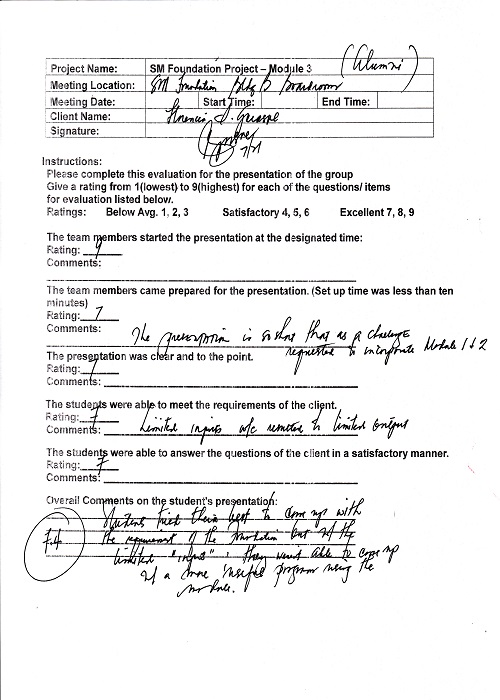 (Alumni)
Project Name: SM Foundation Project – Module 3
Meeting Location: SM Foundation Bldg B Boardroom
Meeting Date: Start Time: End Time:
Client Name:
Signature:
7/21
Instructions:
Please complete this evaluation for the presentation of the group
Give a rating from 1(lowest) to 9(highest) for each of the questions/ items
for evaluation listed below.
Ratings: Below Avg. 1, 2, 3 Satisfactory 4, 5, 6 Excellent 7, 8, 9
The team members started the presentation at the designated time:
Rating: 9
Comments:
The team members came prepared for the presentation. (Set up time was less than ten
minutes)
Rating: 7
Comments: The is so short that as a challenge
requested to incorporate Module 1 & 2
The presentation was clear and to the point.
Rating: 7
Comments:
The students were able to meet the requirements of the client.
Rating: 7
Comments: Limited inputs w/c to limited output
The students were able to answer the questions of the client in a satisfactory manner.
Rating: 7
Comments:
Overall Comments on the student's presentation:
Students tried their best to come up with
7.4
the requirement of the foundation but w/ the
limited "input", they weren't able to come up
w/ a more program using the
modules.